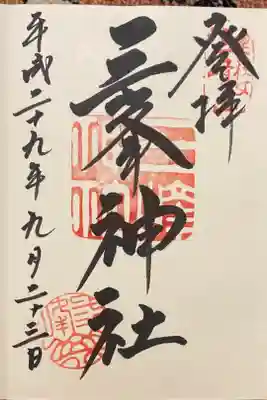 登拝
三峯神社
平成二十九年九月二十三日